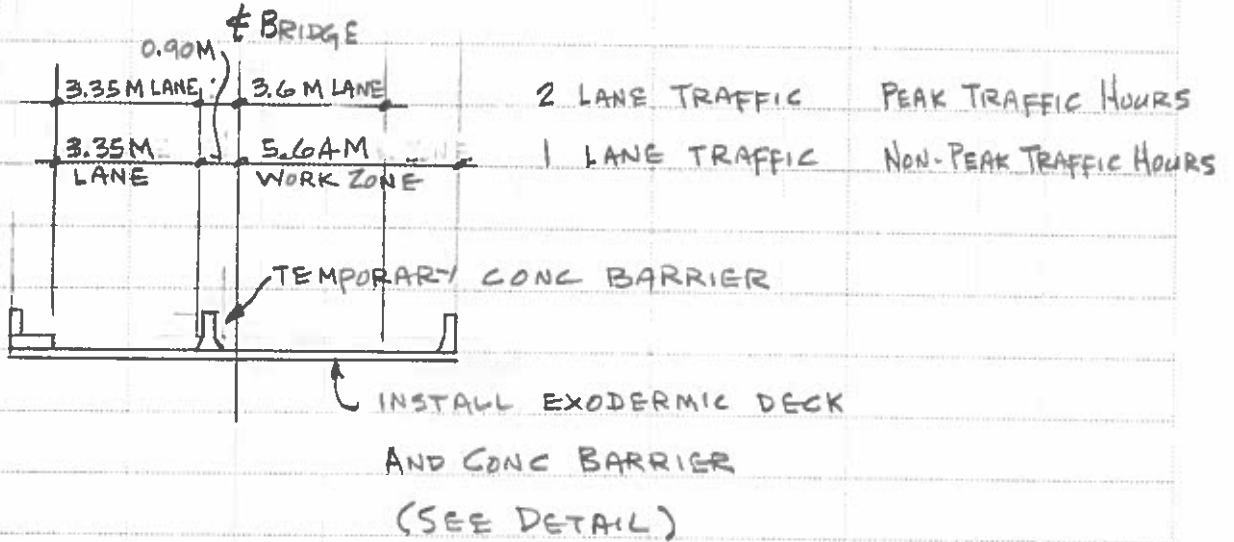 ℄ BRIDGE
0.90M
3.35 M LANE 3.6 M LANE 2 LANE TRAFFIC PEAK TRAFFIC HOURS
3.35M LANE 5.64M WORK ZONE 1 LANE TRAFFIC NON-PEAK TRAFFIC HOURS
TEMPORARY CONC BARRIER
INSTALL EXODERMIC DECK
AND CONC BARRIER
(SEE DETAIL)